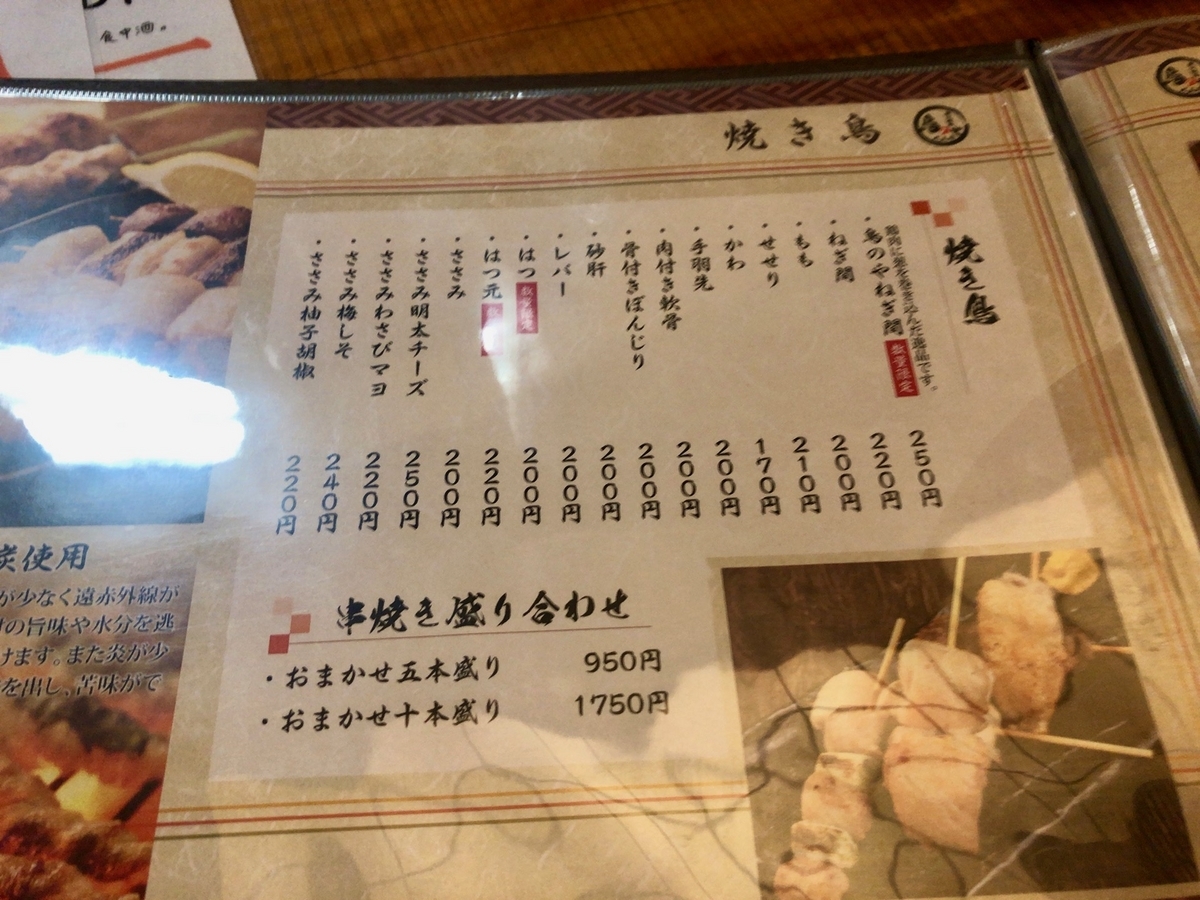 食中酒。
焼き鳥
焼き鳥
鶏肉に葱を巻き込んだ逸品です。
・鳥のやねぎ間 数量限定 250円
・ねぎ間 220円
・もも 200円
・せせり 210円
・かわ 170円
・手羽先 200円
・肉付き軟骨 200円
・骨付きぼんじり 200円
・砂肝 200円
・レバー 200円
・はつ 数量限定 200円
・はつ元 220円
・ささみ 200円
・ささみ明太チーズ 250円
・ささみわさびマヨ 220円
・ささみ梅しそ 240円
・ささみ柚子胡椒 220円
串焼き盛り合わせ
・おまかせ五本盛り 950円
・おまかせ十本盛り 1750円
炭使用
が少なく遠赤外線が
の旨味や水分を逃
けます。また炎が少
を出し、苦味がで